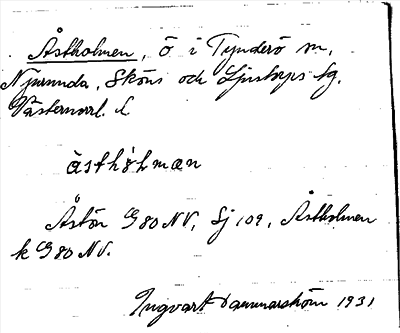 Åstholmen, ö i Tynderö sn,
Njurunda, Sköns och Ljustorps tg,
Västernorrl. l.
åsthòlmæn
Åstön G80 NV, Sj 109, Åstholmen
k G80 NV.
Ingvart Dammarström 1931